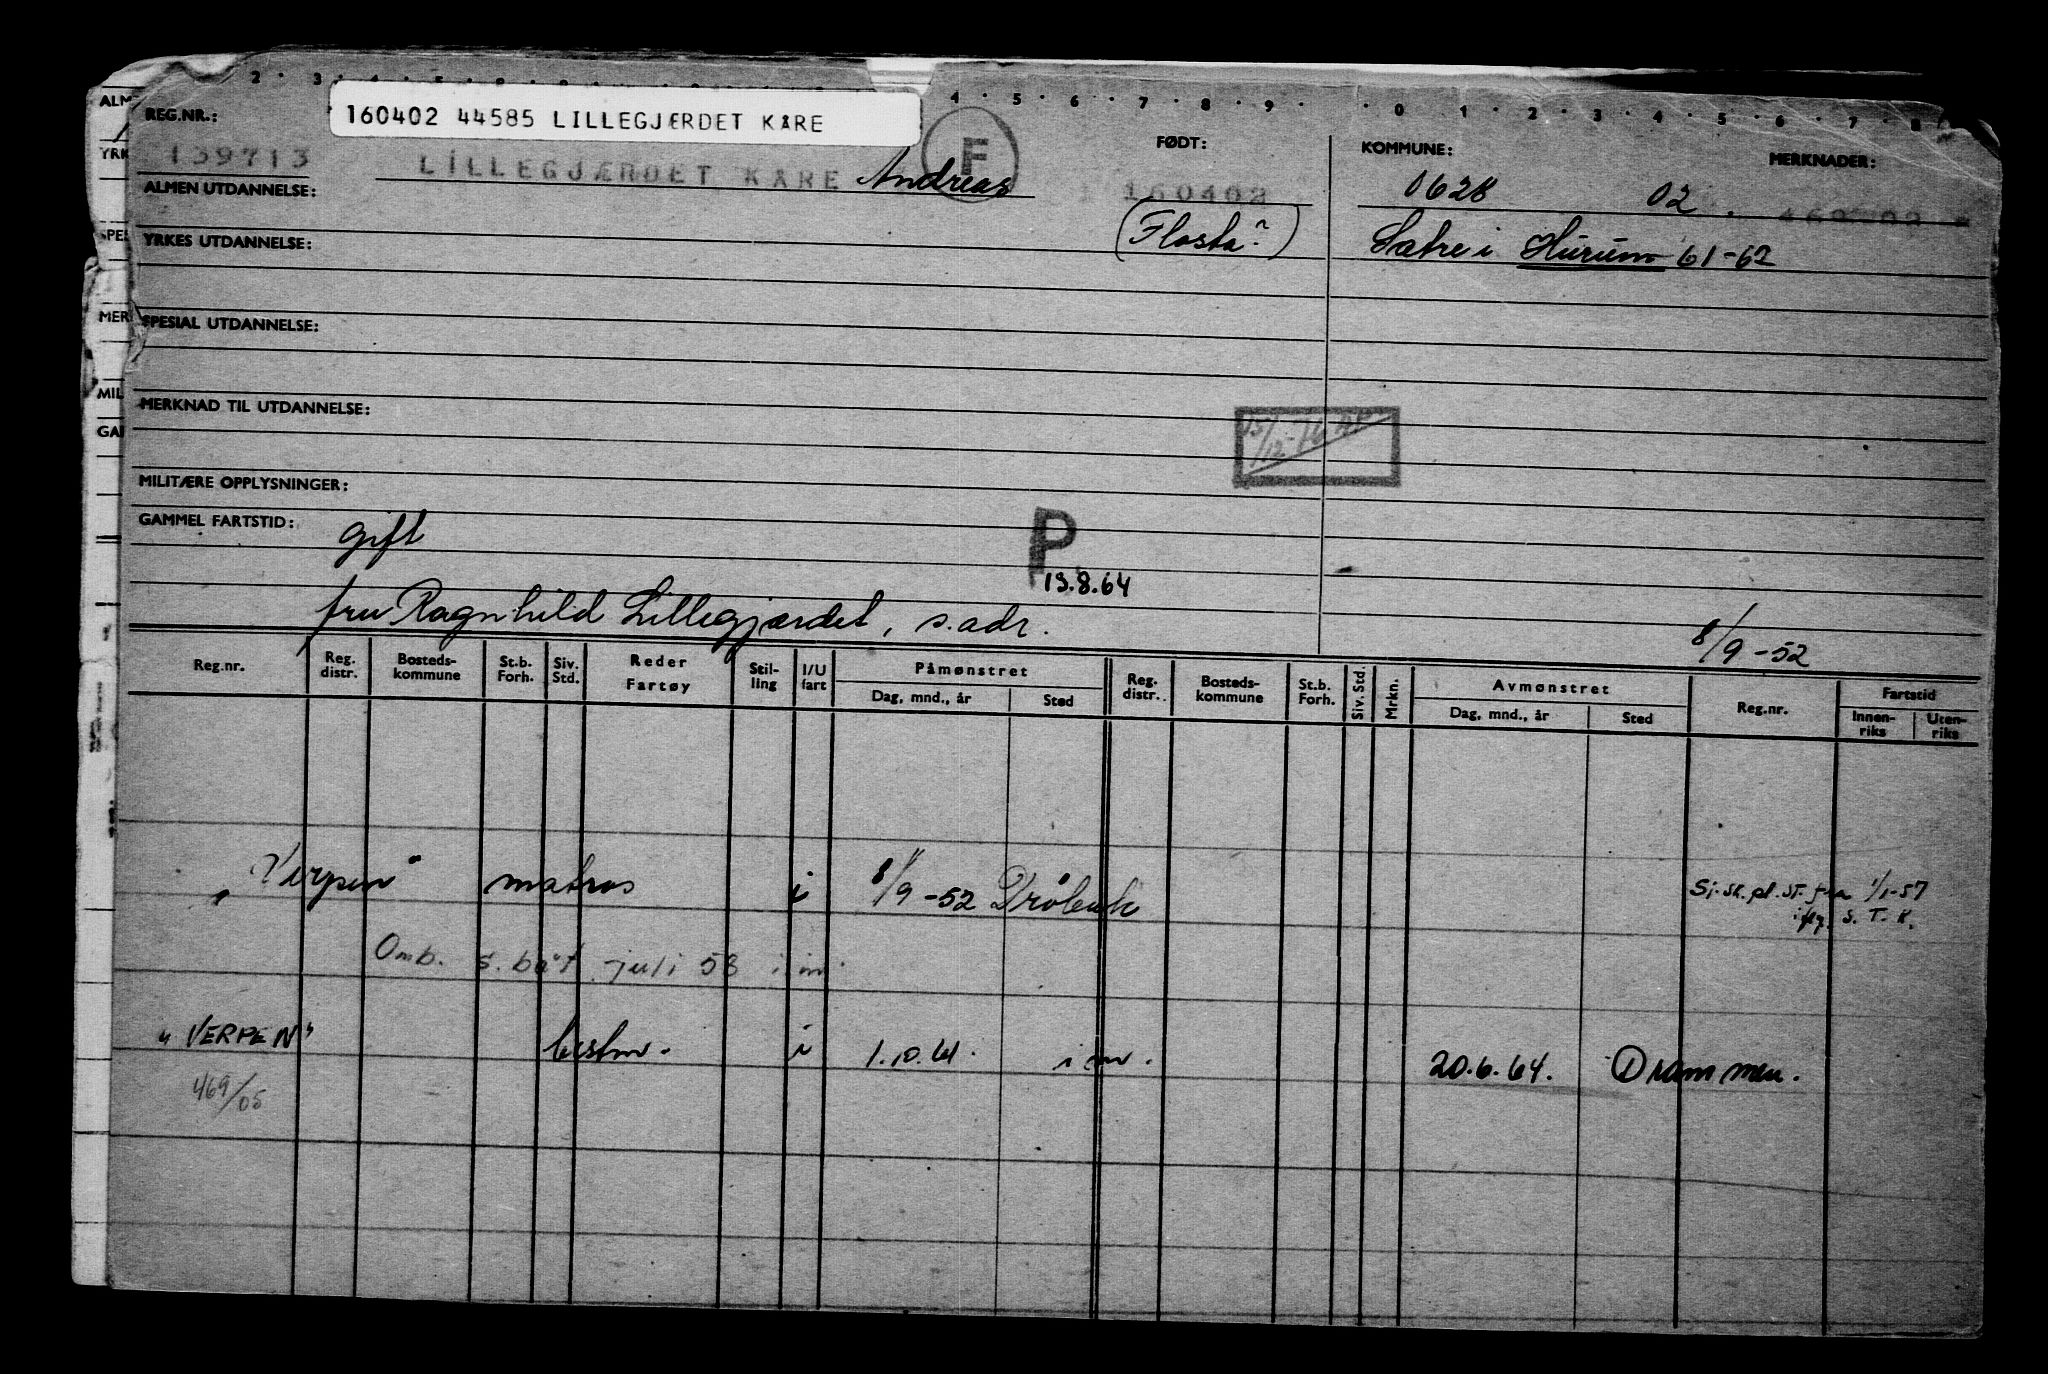 160402 44585 LILLEGJÆRDET KÅRE
REG.NR.:
FØDT:
KOMMUNE:
MERKNADER:
139713
LILLEGJÆRDET KÅRE Andreas
F
160402
0628 02
ALMEN UTDANNELSE:
(Flosta?)
Sætre i Hurum 61-62
YRKES UTDANNELSE:
SPESIAL UTDANNELSE:
MERKNAD TIL UTDANNELSE:
MILITÆRE OPPLYSNINGER:
GAMMEL FARTSTID:
gift
P
13.8.64
fru Ragnhild Lillegjærdet, s.adr.
8/9-52
Reg.nr. Reg. distr. Bosteds-kommune St.b. Forh. Siv. Std. Reder Fartøy Stil-ling I/U fart Påmønstret Dag, mnd., år Sted Reg. distr. Bosteds-kommune St.b. Forh. Siv. Std. Mrkn. Avmønstret Dag, mnd., år Sted Reg.nr. Fartstid Innen-riks Uten-riks
"Verpen" matros i 8/9-52 Drøbak
Si.sk.pl.st. fra 1/1-57
iflg. S.T.K.
Omb. s. båt juli 58 i m.
"VERPEN" bestm. i 1.10.61. i m. 20.6.64. Drammen.
469/05